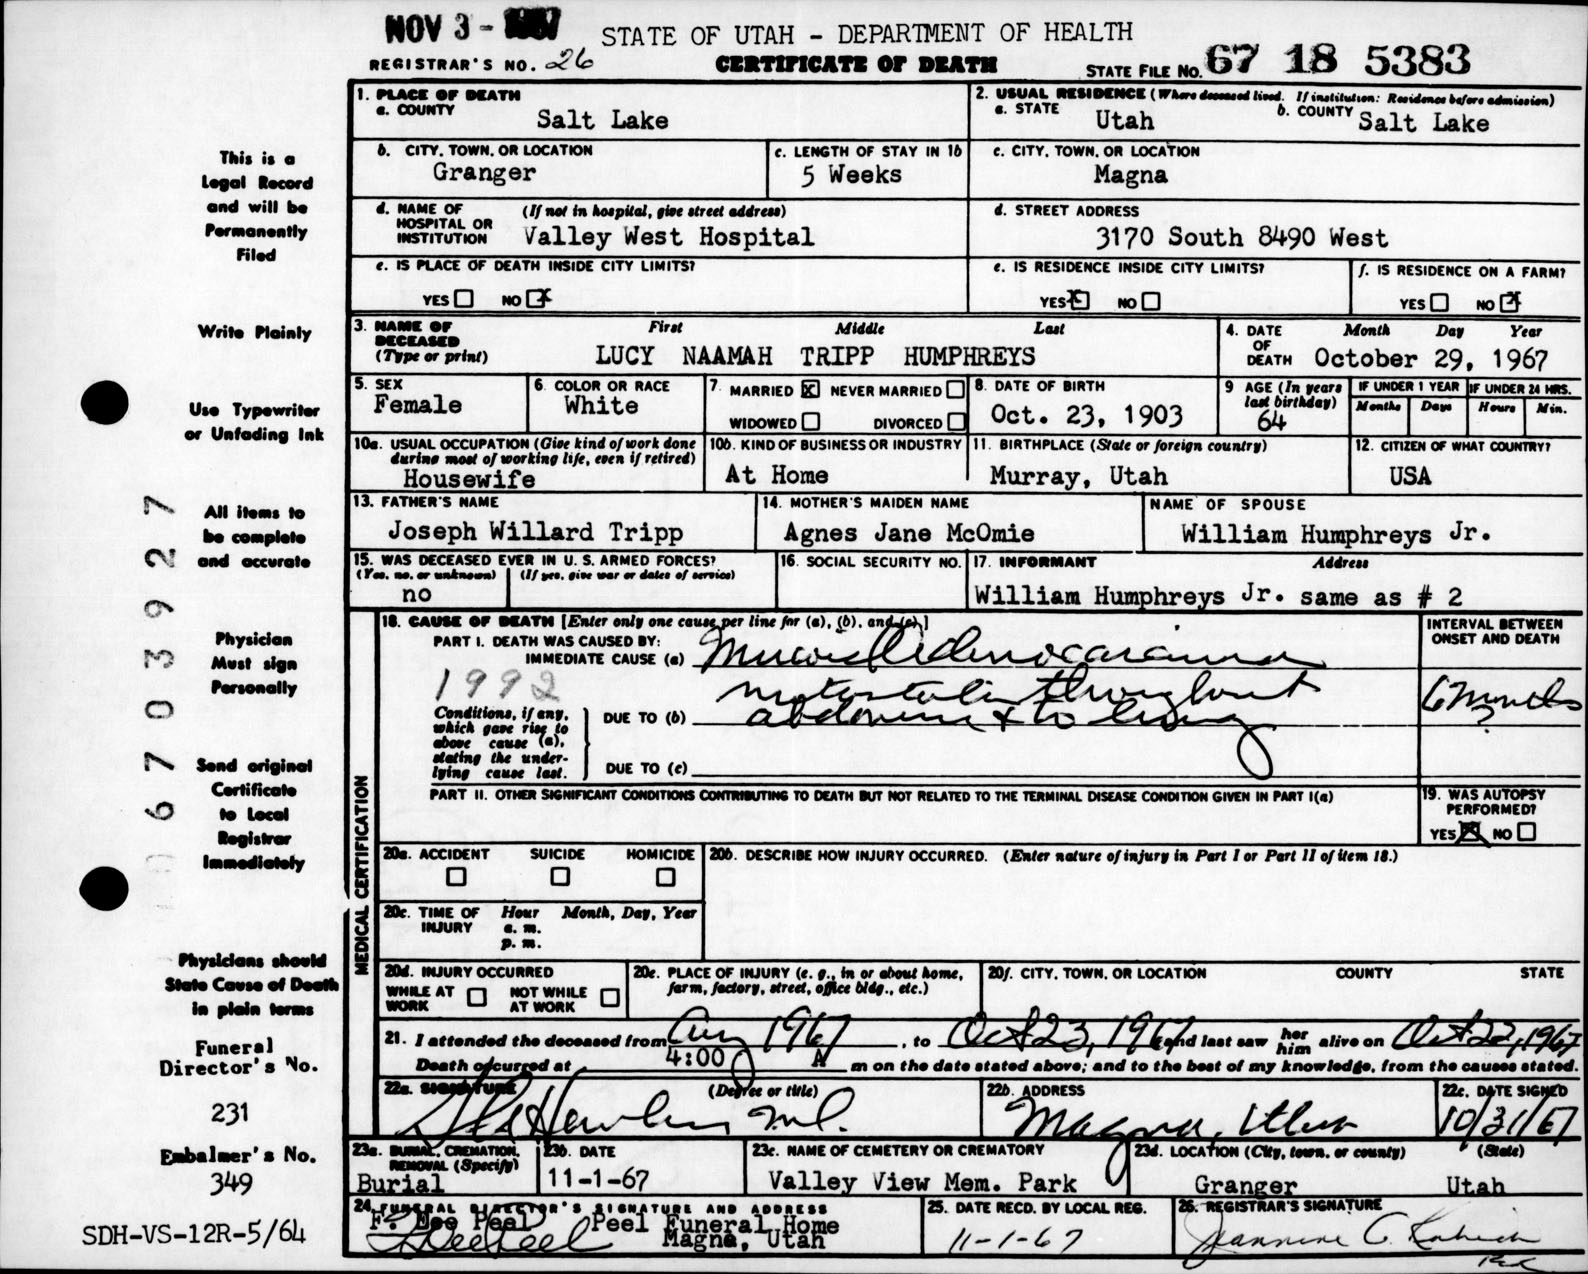 NOV 3 - 1967
STATE OF UTAH - DEPARTMENT OF HEALTH
REGISTRAR'S NO. 26
CERTIFICATE OF DEATH
STATE FILE NO. 67 18 5383
This is a
Legal Record
and will be
Permanently
Filed
Write Plainly
Use Typewriter
or Unfading Ink
All items to
be complete
and accurate
Physician
Must sign
Personally
Send original
Certificate
to Local
Registrar
Immediately
Physicians should
State Cause of Death
in plain terms
Funeral
Director's No.
231
Embalmer's No.
349
SDH-VS-12R-5/64
6703927
1. PLACE OF DEATH
a. COUNTY
Salt Lake
2. USUAL RESIDENCE (Where deceased lived. If institution: Residence before admission)
a. STATE
Utah
b. COUNTY
Salt Lake
b. CITY, TOWN, OR LOCATION
Granger
c. LENGTH OF STAY IN 1b
5 Weeks
c. CITY, TOWN, OR LOCATION
Magna
d. NAME OF HOSPITAL OR INSTITUTION
(If not in hospital, give street address)
Valley West Hospital
d. STREET ADDRESS
3170 South 8490 West
e. IS PLACE OF DEATH INSIDE CITY LIMITS?
YES NO X
e. IS RESIDENCE INSIDE CITY LIMITS?
YES X NO
f. IS RESIDENCE ON A FARM?
YES NO X
3. NAME OF DECEASED
(Type or print)
First Middle Last
LUCY NAAMAH TRIPP HUMPHREYS
4. DATE OF DEATH
Month Day Year
October 29, 1967
5. SEX
Female
6. COLOR OR RACE
White
7. MARRIED X NEVER MARRIED
WIDOWED DIVORCED
8. DATE OF BIRTH
Oct. 23, 1903
9 AGE (In years last birthday)
64
IF UNDER 1 YEAR
Months Days
IF UNDER 24 HRS.
Hours Min.
10a. USUAL OCCUPATION (Give kind of work done during most of working life, even if retired)
Housewife
10b. KIND OF BUSINESS OR INDUSTRY
At Home
11. BIRTHPLACE (State or foreign country)
Murray, Utah
12. CITIZEN OF WHAT COUNTRY?
USA
13. FATHER'S NAME
Joseph Willard Tripp
14. MOTHER'S MAIDEN NAME
Agnes Jane McOmie
NAME OF SPOUSE
William Humphreys Jr.
15. WAS DECEASED EVER IN U. S. ARMED FORCES?
(Yes, no, or unknown) (If yes, give war or dates of service)
no
16. SOCIAL SECURITY NO.
17. INFORMANT Address
William Humphreys Jr. same as # 2
MEDICAL CERTIFICATION
18. CAUSE OF DEATH [Enter only one cause per line for (a), (b), and (c).]
PART I. DEATH WAS CAUSED BY:
IMMEDIATE CAUSE (a) Adenocarcinoma
1992
metastatic throughout
Conditions, if any, which gave rise to above cause (a), stating the underlying cause last.
DUE TO (b) abdomen & to lung
DUE TO (c)
INTERVAL BETWEEN ONSET AND DEATH
6 months
?
PART II. OTHER SIGNIFICANT CONDITIONS CONTRIBUTING TO DEATH BUT NOT RELATED TO THE TERMINAL DISEASE CONDITION GIVEN IN PART I(a)
19. WAS AUTOPSY PERFORMED?
YES X NO
20a. ACCIDENT SUICIDE HOMICIDE
20b. DESCRIBE HOW INJURY OCCURRED. (Enter nature of injury in Part I or Part II of item 18.)
20c. TIME OF INJURY
Hour Month, Day, Year
a. m.
p. m.
20d. INJURY OCCURRED
WHILE AT WORK NOT WHILE AT WORK
20e. PLACE OF INJURY (e. g., in or about home, farm, factory, street, office bldg., etc.)
20f. CITY, TOWN, OR LOCATION COUNTY STATE
21. I attended the deceased from Aug 1967, to Oct 23, 1967 and last saw her him alive on Oct 22, 1967
Death occurred at 4:00 A m on the date stated above; and to the best of my knowledge, from the causes stated.
22a. SIGNATURE (Degree or title)
M.D.
22b. ADDRESS
Magna, Utah
22c. DATE SIGNED
10/31/67
23a. BURIAL, CREMATION, REMOVAL (Specify)
Burial
23b. DATE
11-1-67
23c. NAME OF CEMETERY OR CREMATORY
Valley View Mem. Park
23d. LOCATION (City, town, or county) (State)
Granger Utah
24. FUNERAL DIRECTOR'S SIGNATURE AND ADDRESS
Peel Peel Funeral Home
Magna, Utah
25. DATE RECD. BY LOCAL REG.
11-1-67
26. REGISTRAR'S SIGNATURE
Jeannine C.